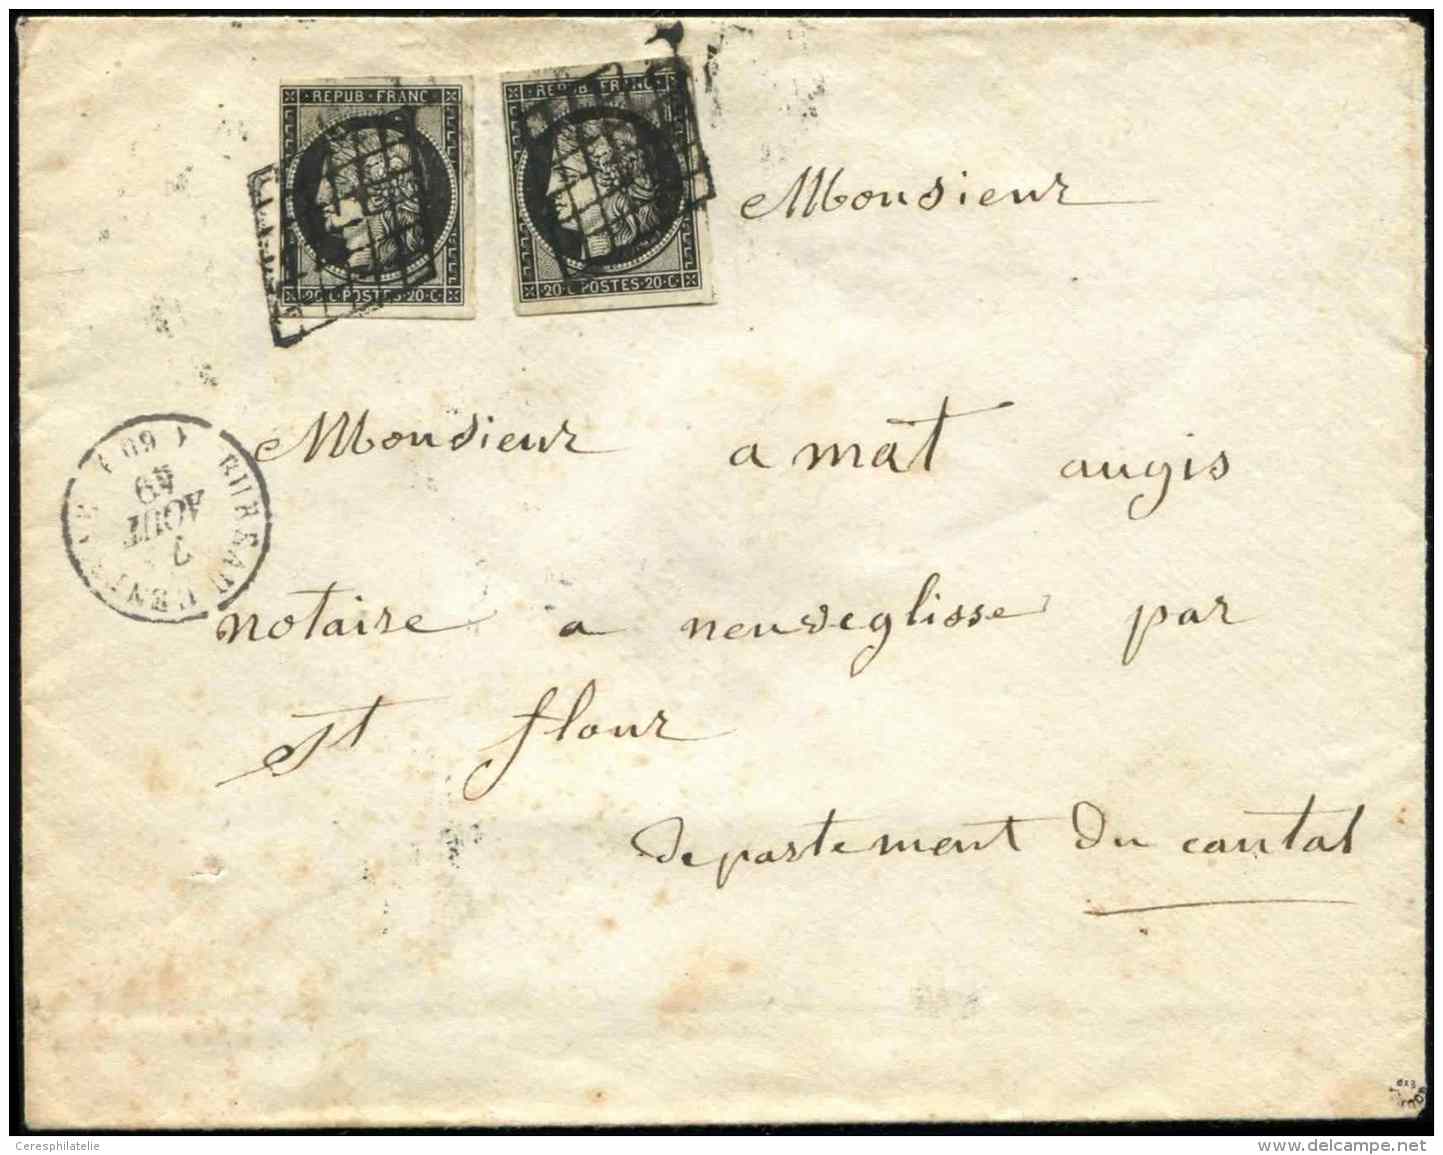 REPUB·FRANC
REPUB·FRANC
20·C·POSTES·20·C·
20·C·POSTES·20·C·
Monsieur
Monsieur amat augis
BUREAU CENTRAL (60)
7
AOUT
49
notaire a neuveglisse par
st flour
departement Du cantal
Ceresphilatelie
www.delcampe.net